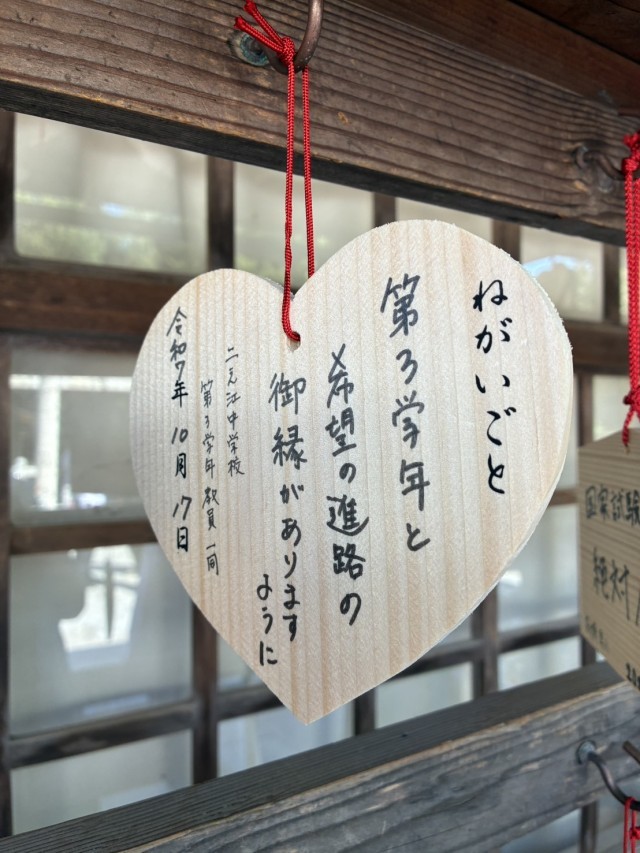 ねがいごと
第3学年と
希望の進路の
御縁があります
ように
二之江中学校
第3学年教員一同
令和7年 10月 17日
国家試験
絶対